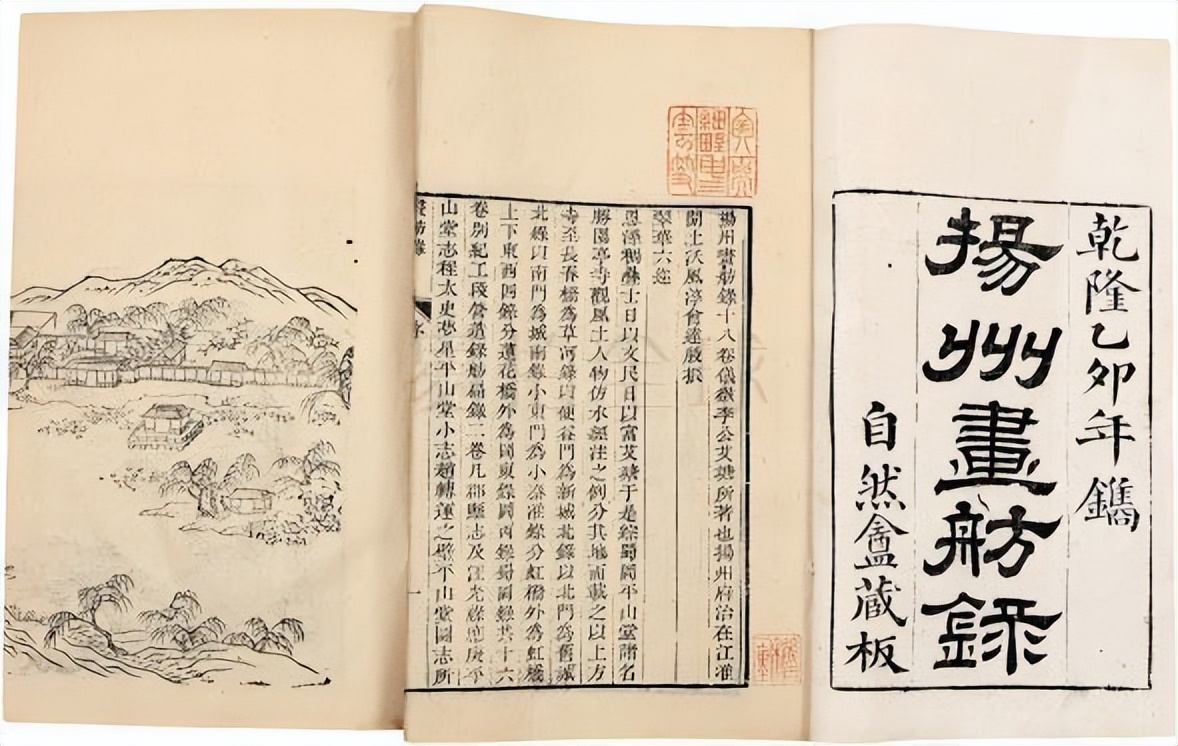 乾隆乙卯年鐫
揚州畫舫錄
自然盦蔵板
揚州畫舫錄十八卷儀徵李公艾塘所著也揚州府治在江淮
間土沃風淳會逢
翠華六巡
恩澤稠疊士日以文民日以富艾塘于是綜蜀岡平山堂諸名
勝園亭寺觀風土人物仿水經注之例分其地而載之以上方
寺至長春橋為草河錄以便益門為新城北錄以北門為舊城
北錄以南門為城南錄小東門為小秦淮錄分虹橋外為虹橋
上下東西四錄分蓮花橋外為岡東錄岡西錄蜀岡錄共十六
卷別紀工段營造錄舫扁錄二卷凡郡縣志及汪光祿應庚平
山堂志程太史夢星平山堂小志趙轉運之壁平山堂圖志所
畫舫錄
序
一